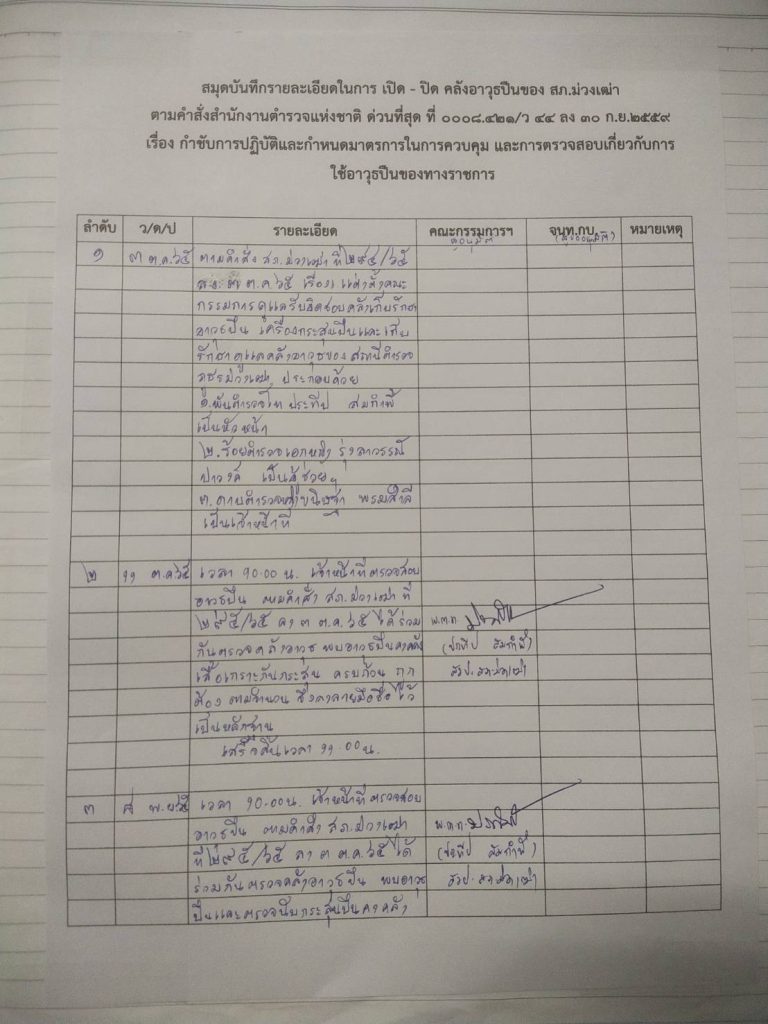 สมุดบันทึกรายละเอียดในการ เปิด - ปิด คลังอาวุธปืนของ สภ.ม่วงเฒ่า
ตามคำสั่งสำนักงานตำรวจแห่งชาติ ด่วนที่สุด ที่ ๐๐๐๘.๔๒๑/ว ๔๔ ลง ๓๐ ก.ย.๒๕๕๙
เรื่อง กำชับการปฏิบัติและกำหนดมาตรการในการควบคุม และการตรวจสอบเกี่ยวกับการ
ใช้อาวุธปืนของทางราชการ
ลำดับ ว/ด/ป รายละเอียด คณะกรรมการฯ จนท.กบ. หมายเหตุ
๑ ๓ ต.ค.๖๕ ตามคำสั่ง สภ.ม่วงเฒ่า ที่ ๒๙๕/๖๕
ต.ค ๖๕ เรื่อง แต่งตั้งคณะ
กรรมการดูแลรับผิดชอบคลังเก็บรักษา
อาวุธปืน เครื่องกระสุนปืนและเก็บ
รักษาดูแลคลังอาวุธของสถานีตำรวจ
ภูธรม่วงเฒ่า ประกอบด้วย
๑.พันตำรวจโท ประทีป
เป็นหัวหน้า
๒.ร้อยตำรวจเอกหญิง รุ่งลาวรรณ์
เป็นผู้ช่วยฯ
๓.ดาบตำรวจหญิง
เป็นเจ้าหน้าที่
๒ ๑๑ ต.ค ๖๕ เวลา ๑๐.๐๐ น. เจ้าหน้าที่ตรวจสอบ
อาวุธปืน ตามคำสั่ง สภ.ม่วงเฒ่า ที่
๒๙๕/๖๕ ลง ๓ ต.ค ๖๕ ได้ร่วม พ.ต.ท
กันตรวจคลังอาวุธ พบอาวุธปืนคงคลัง (ประทีป
เสื้อเกราะกันกระสุน ครบถ้วน ถูก
ต้อง ตามจำนวน จึงลงลายมือชื่อไว้
เป็นหลักฐาน
เสร็จสิ้นเวลา ๑๑.๐๐ น.
๓ เวลา ๑๐.๐๐ น. เจ้าหน้าที่ตรวจสอบ
อาวุธปืน ตามคำสั่ง สภ.ม่วงเฒ่า พ.ต.ท.
ที่ ๒๙๕/๖๕ ลง ๓ ต.ค ๖๕ ได้ (ประทีป
ร่วมกันตรวจคลังอาวุธปืน พบอาวุธ
ปืนและตรวจนับกระสุนปืนคงคลัง